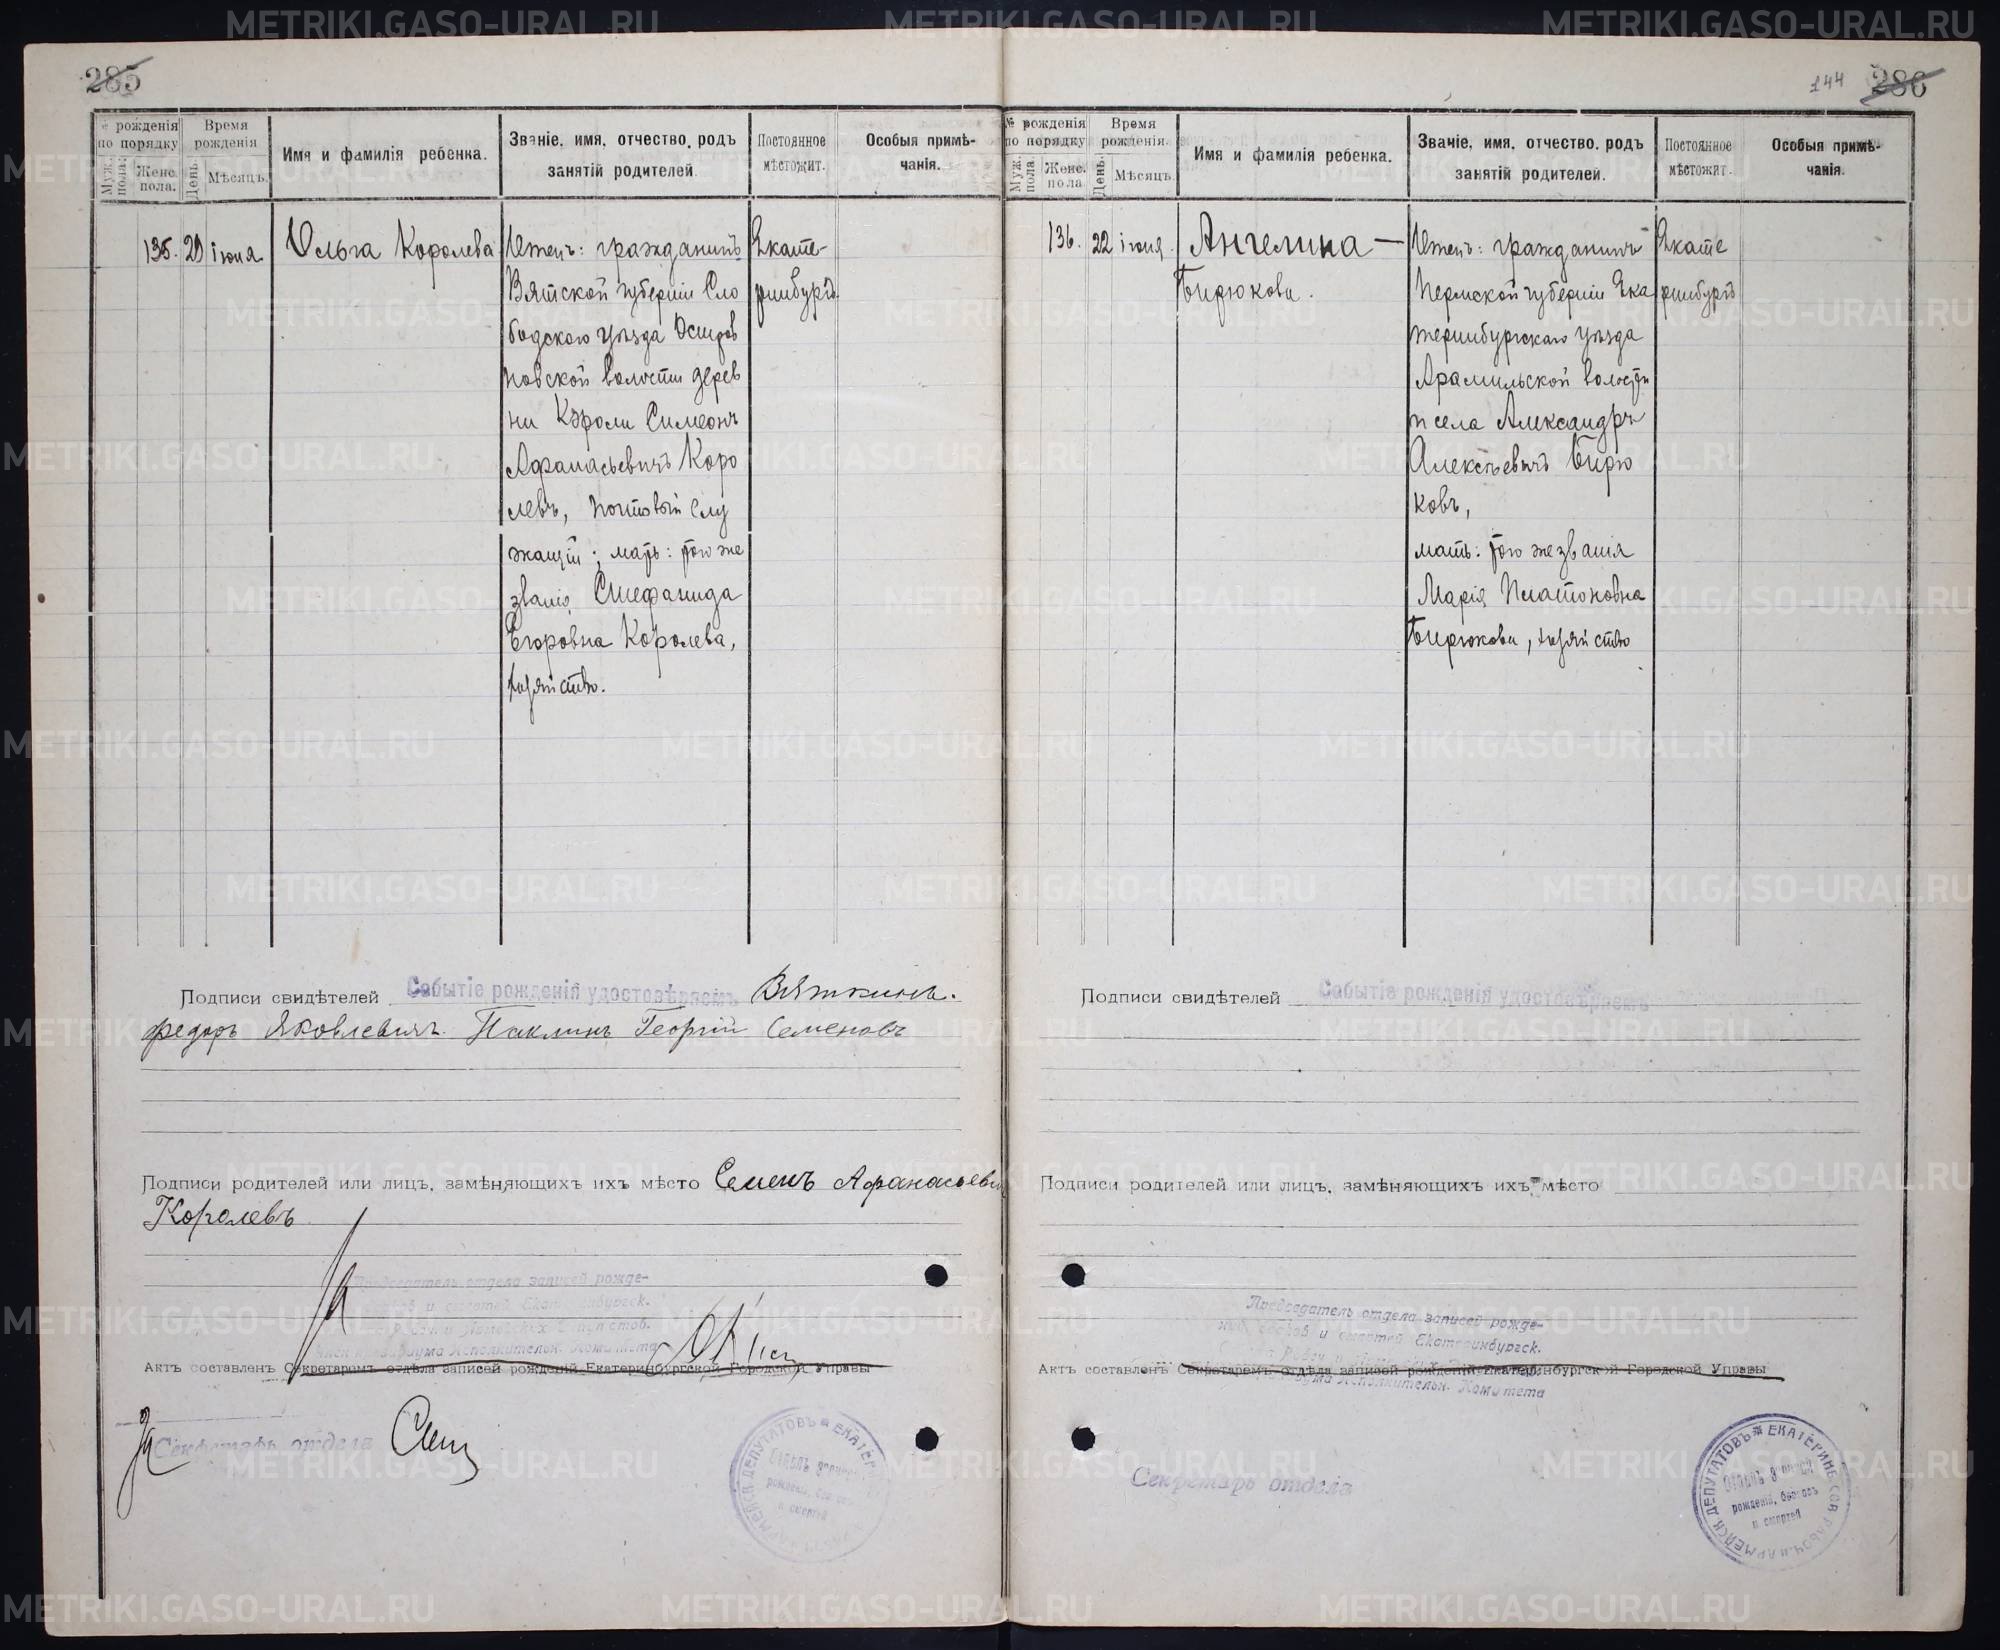 285
№ рожденія по порядку
Муж. пола.
Женс. пола.
Время рожденія
День.
Мѣсяцъ.
Имя и фамилія ребенка.
Званіе, имя, отчество, родъ
занятій родителей.
Постоянное
мѣстожит.
Особыя примѣ-
чанія.
135. іюня Ольга Королева
Отецъ: гражданинъ
Вятской губерніи Сло
бодского уѣзда
новской волости дерев
ни Симеонъ
Афанасьевичъ Коро
левъ, почтовый слу
жащій; мать: того же
званія Стефанида
Егоровна Королева,
хозяйство.
Екате-
ринбургъ.
Подписи свидѣтелей Событіе рожденія удостовѣряемъ Вяткинъ.
Федоръ Яковлевичъ. Паклинъ Георгій Семеновъ
Подписи родителей или лицъ, замѣняющихъ ихъ мѣсто Семенъ Афанасьевич
Королевъ
Предсѣдатель отдела записей рожде-
и смертей Екатеринбургск.
Исполнительн. Комитета
Актъ составленъ Секретаремъ отдѣла записей рожденій Екатеринбургской Городской Управы
За Секретарь отдела
144 286
№ рожденія по порядку
Муж. пола.
Женс. пола
Время рожденія.
День.
Мѣсяцъ.
Имя и фамилія ребенка.
Званіе, имя, отчество, родъ
занятій родителей.
Постоянное
мѣстожит.
Особыя примѣ-
чанія.
136. 22 іюня Ангелина —
Бирюкова.
Отецъ: гражданинъ
Пермской губерніи Ека
теринбургскаго уѣзда
Арамильской волости
и села Александръ
Алексѣевичъ Бирю
ковъ,
мать: того же званія
Марія Платоновна
Бирюкова, хозяйство
Екате
ринбургъ
Подписи свидѣтелей Событіе рожденія удостовѣряемъ
Подписи родителей или лицъ, замѣняющихъ ихъ мѣсто
Предсѣдатель отдела записей рожде-
и смертей Екатеринбургск.
Исполнительн. Комитета
Актъ составленъ Секретаремъ отдѣла записей рожденій Екатеринбургской Городской Управы
Секретарь отдела
Отдѣлъ записей
рожденій, браковъ
и смертей
METRIKI.GASO-URAL.RU